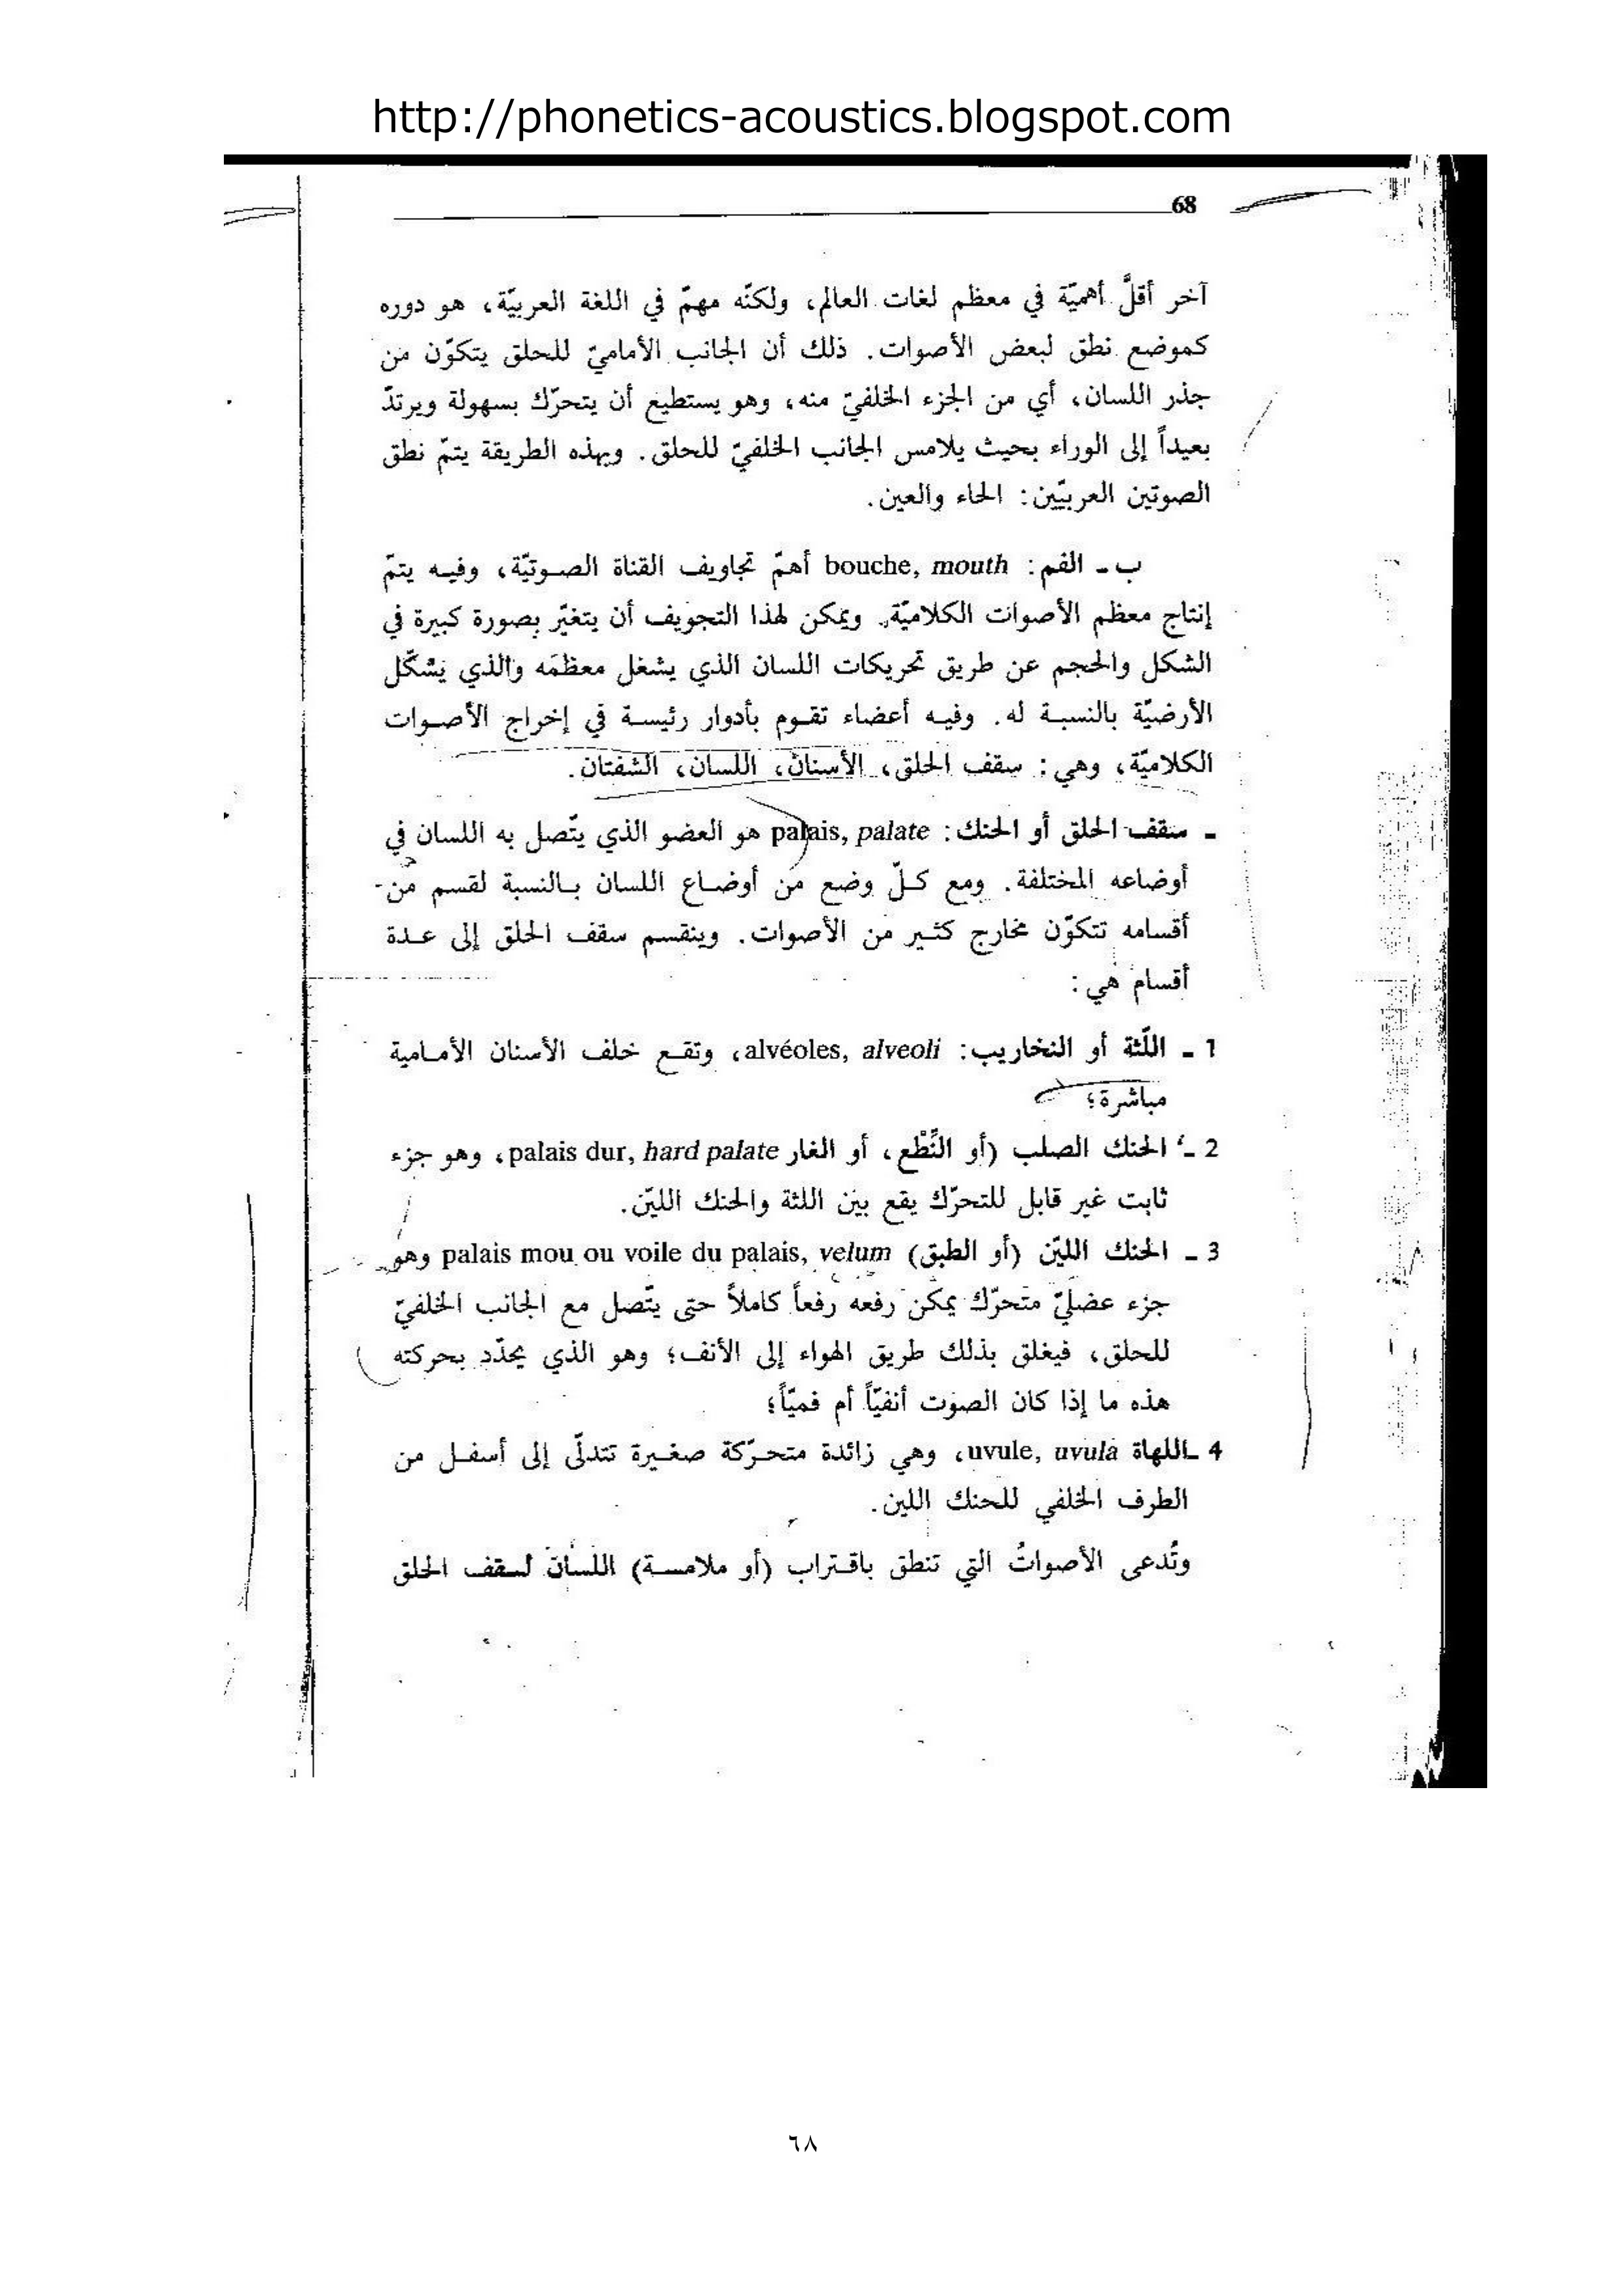 http://phonetics-acoustics.blogspot.com
68
آخر أقلَّ أهميّة في معظم لغات العالم، ولكنّه مهمّ في اللغة العربيّة، هو دوره
كموضع نطق لبعض الأصوات. ذلك أن الجانب الأماميّ للحلق يتكوّن من
جذر اللسان، أي من الجزء الخلفيّ منه، وهو يستطيع أن يتحرّك بسهولة ويرتدّ
بعيداً إلى الوراء بحيث يلامس الجانب الخلفيّ للحلق. وبهذه الطريقة يتمّ نطق
الصوتين العربيّين: الحاء والعين.
ب ـ الفم: bouche, mouth أهمّ تجاويف القناة الصـوتيّة، وفيـه يتمّ
إنتاج معظم الأصوات الكلاميّة. ويمكن لهذا التجويف أن يتغيّر بصورة كبيرة في
الشكل والحجم عن طريق تحريكات اللسان الذي يشغل معظمَه والذي يشكّل
الأرضيّة بالنسبـة له. وفيـه أعضاء تقـوم بأدوار رئيسـة في إخراج الأصـوات
الكلاميّة، وهي: سقف الحلق، الأسنان، اللسان، الشفتان.
ـ سقف الحلق أو الحنك: palais, palate هو العضو الذي يتّصل به اللسان في
أوضاعه المختلفة. ومع كـلّ وضع من أوضـاع اللسان بـالنسبة لقسم من
أقسامه تتكوّن مخارج كثـير من الأصوات. وينقسم سقف الحلق إلى عـدة
أقسام هي:
1 ـ اللّثة أو النخاريب: alvéoles, alveoli، وتقـع خلف الأسنان الأمـامية
مباشرة؛
2 ـ الحنك الصلب (أو النِّطْع، أو الغار palais dur, hard palate، وهو جزء
ثابت غير قابل للتحرّك يقع بين اللثة والحنك الليّن.
3 ـ الحنك الليّن (أو الطبق) palais mou ou voile du palais, velum وهو
جزء عضليّ متحرّك يمكن رفعه رفعاً كاملاً حتى يتّصل مع الجانب الخلفيّ
للحلق، فيغلق بذلك طريق الهواء إلى الأنف؛ وهو الذي يحدّد بحركته
هذه ما إذا كان الصوت أنفيّاً أم فميّاً؛
4 ـ اللهاة uvule, uvula، وهي زائدة متحـرّكة صغـيرة تتدلّى إلى أسفـل من
الطرف الخلفي للحنك اللين.
وتُدعى الأصواتُ التي تنطق باقـتراب (أو ملامسـة) اللسان لسقف الحلق
٦٨